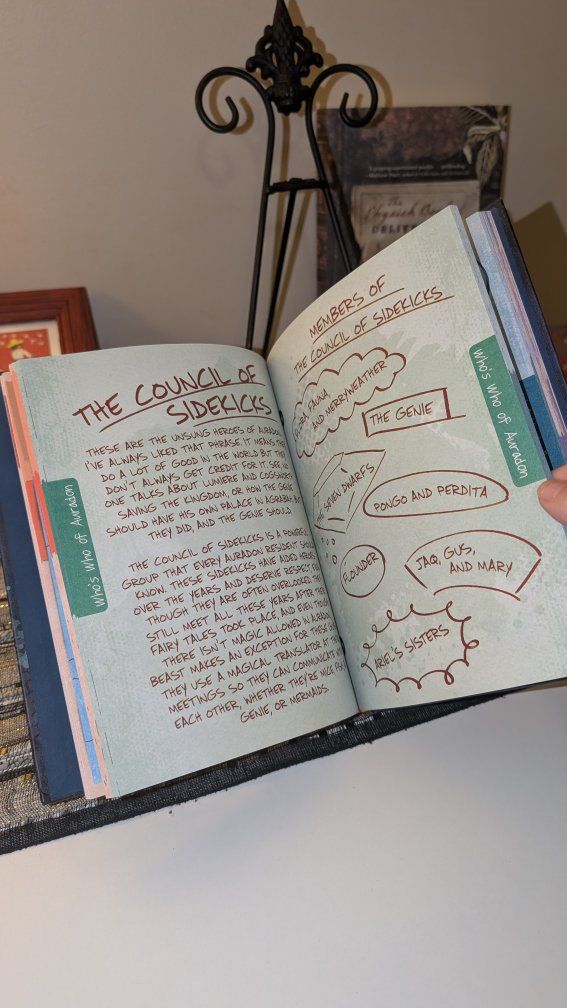 THE COUNCIL OF
SIDEKICKS
THESE ARE THE UNSUNG HEROES OF AURADON.
I'VE ALWAYS LIKED THAT PHRASE. IT MEANS THEY
DO A LOT OF GOOD IN THE WORLD BUT THEY
DON'T ALWAYS GET CREDIT FOR IT. SEE, NO
ONE TALKS ABOUT LUMIERE AND COGSWORTH
SAVING THE KINGDOM, OR HOW THE GENIE
SHOULD HAVE HIS OWN PALACE IN AGRABAH, BUT
THEY DID, AND THE GENIE SHOULD.
THE COUNCIL OF SIDEKICKS IS A POWERFUL
GROUP THAT EVERY AURADON RESIDENT SHOULD
KNOW. THESE SIDEKICKS HAVE AIDED HEROES
OVER THE YEARS AND DESERVE RESPECT EVEN
THOUGH THEY ARE OFTEN OVERLOOKED. THEY
STILL MEET ALL THESE YEARS AFTER THEIR
FAIRY TALES TOOK PLACE, AND EVEN THOUGH
THERE ISN'T MAGIC ALLOWED IN AURADON,
BEAST MAKES AN EXCEPTION FOR THESE GUYS.
THEY USE A MAGICAL TRANSLATOR AT THE
MEETINGS SO THEY CAN COMMUNICATE WITH
EACH OTHER, WHETHER THEY'RE MICE, FISH,
GENIE, OR MERMAIDS.
Who's Who of Auradon
MEMBERS OF
THE COUNCIL OF SIDEKICKS
FLORA, FAUNA,
AND MERRYWEATHER
THE GENIE
THE SEVEN DWARFS
PONGO AND PERDITA
FLOUNDER
JAQ, GUS,
AND MARY
ARIEL'S SISTERS
Who's Who of Auradon
The
Physick Book